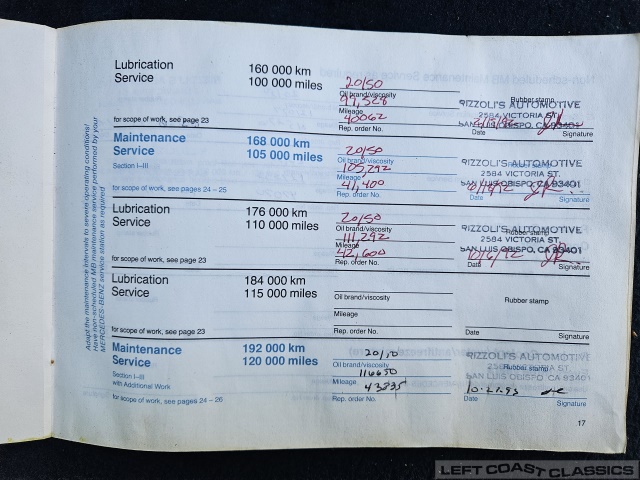 Adapt the maintenance intervals to severe operating conditions!
Have non-scheduled MB maintenance service performed by your
MERCEDES-BENZ service station as required
Lubrication 160 000 km
Service 100 000 miles
20/50
Oil brand/viscosity
97,528
Mileage
40062
Rep. order No.
for scope of work, see page 23
Rubber stamp
RIZZOLI'S AUTOMOTIVE
2584 VICTORIA ST.
SAN LUIS OBISPO, CA 93401
Date
Signature
Maintenance 168 000 km
Service 105 000 miles
Section I–III
for scope of work, see pages 24 – 25
20/50
Oil brand/viscosity
105,292
Mileage
41,400
Rep. order No.
RIZZOLI'S AUTOMOTIVE
2584 VICTORIA ST.
SAN LUIS OBISPO, CA 93401
Date
Signature
Lubrication 176 000 km
Service 110 000 miles
20/50
Oil brand/viscosity
111,292
Mileage
42,600
Rep. order No.
for scope of work, see page 23
RIZZOLI'S AUTOMOTIVE
Rubber stamp
2584 VICTORIA ST.
SAN LUIS OBISPO, CA 93401
10/6/92
Date
Signature
Lubrication 184 000 km
Service 115 000 miles
Oil brand/viscosity
Mileage
Rep. order No.
for scope of work, see page 23
Rubber stamp
Date
Signature
Maintenance 192 000 km
Service 120 000 miles
Section I–III
with Additional Work
for scope of work, see pages 24 – 26
Oil brand/viscosity
116650
Mileage
43835
Rep. order No.
RIZZOLI'S AUTOMOTIVE
2584 VICTORIA ST.
Rubber stamp
SAN LUIS OBISPO, CA 93401
10-27-93
Date
Signature
17
LEFT COAST CLASSICS